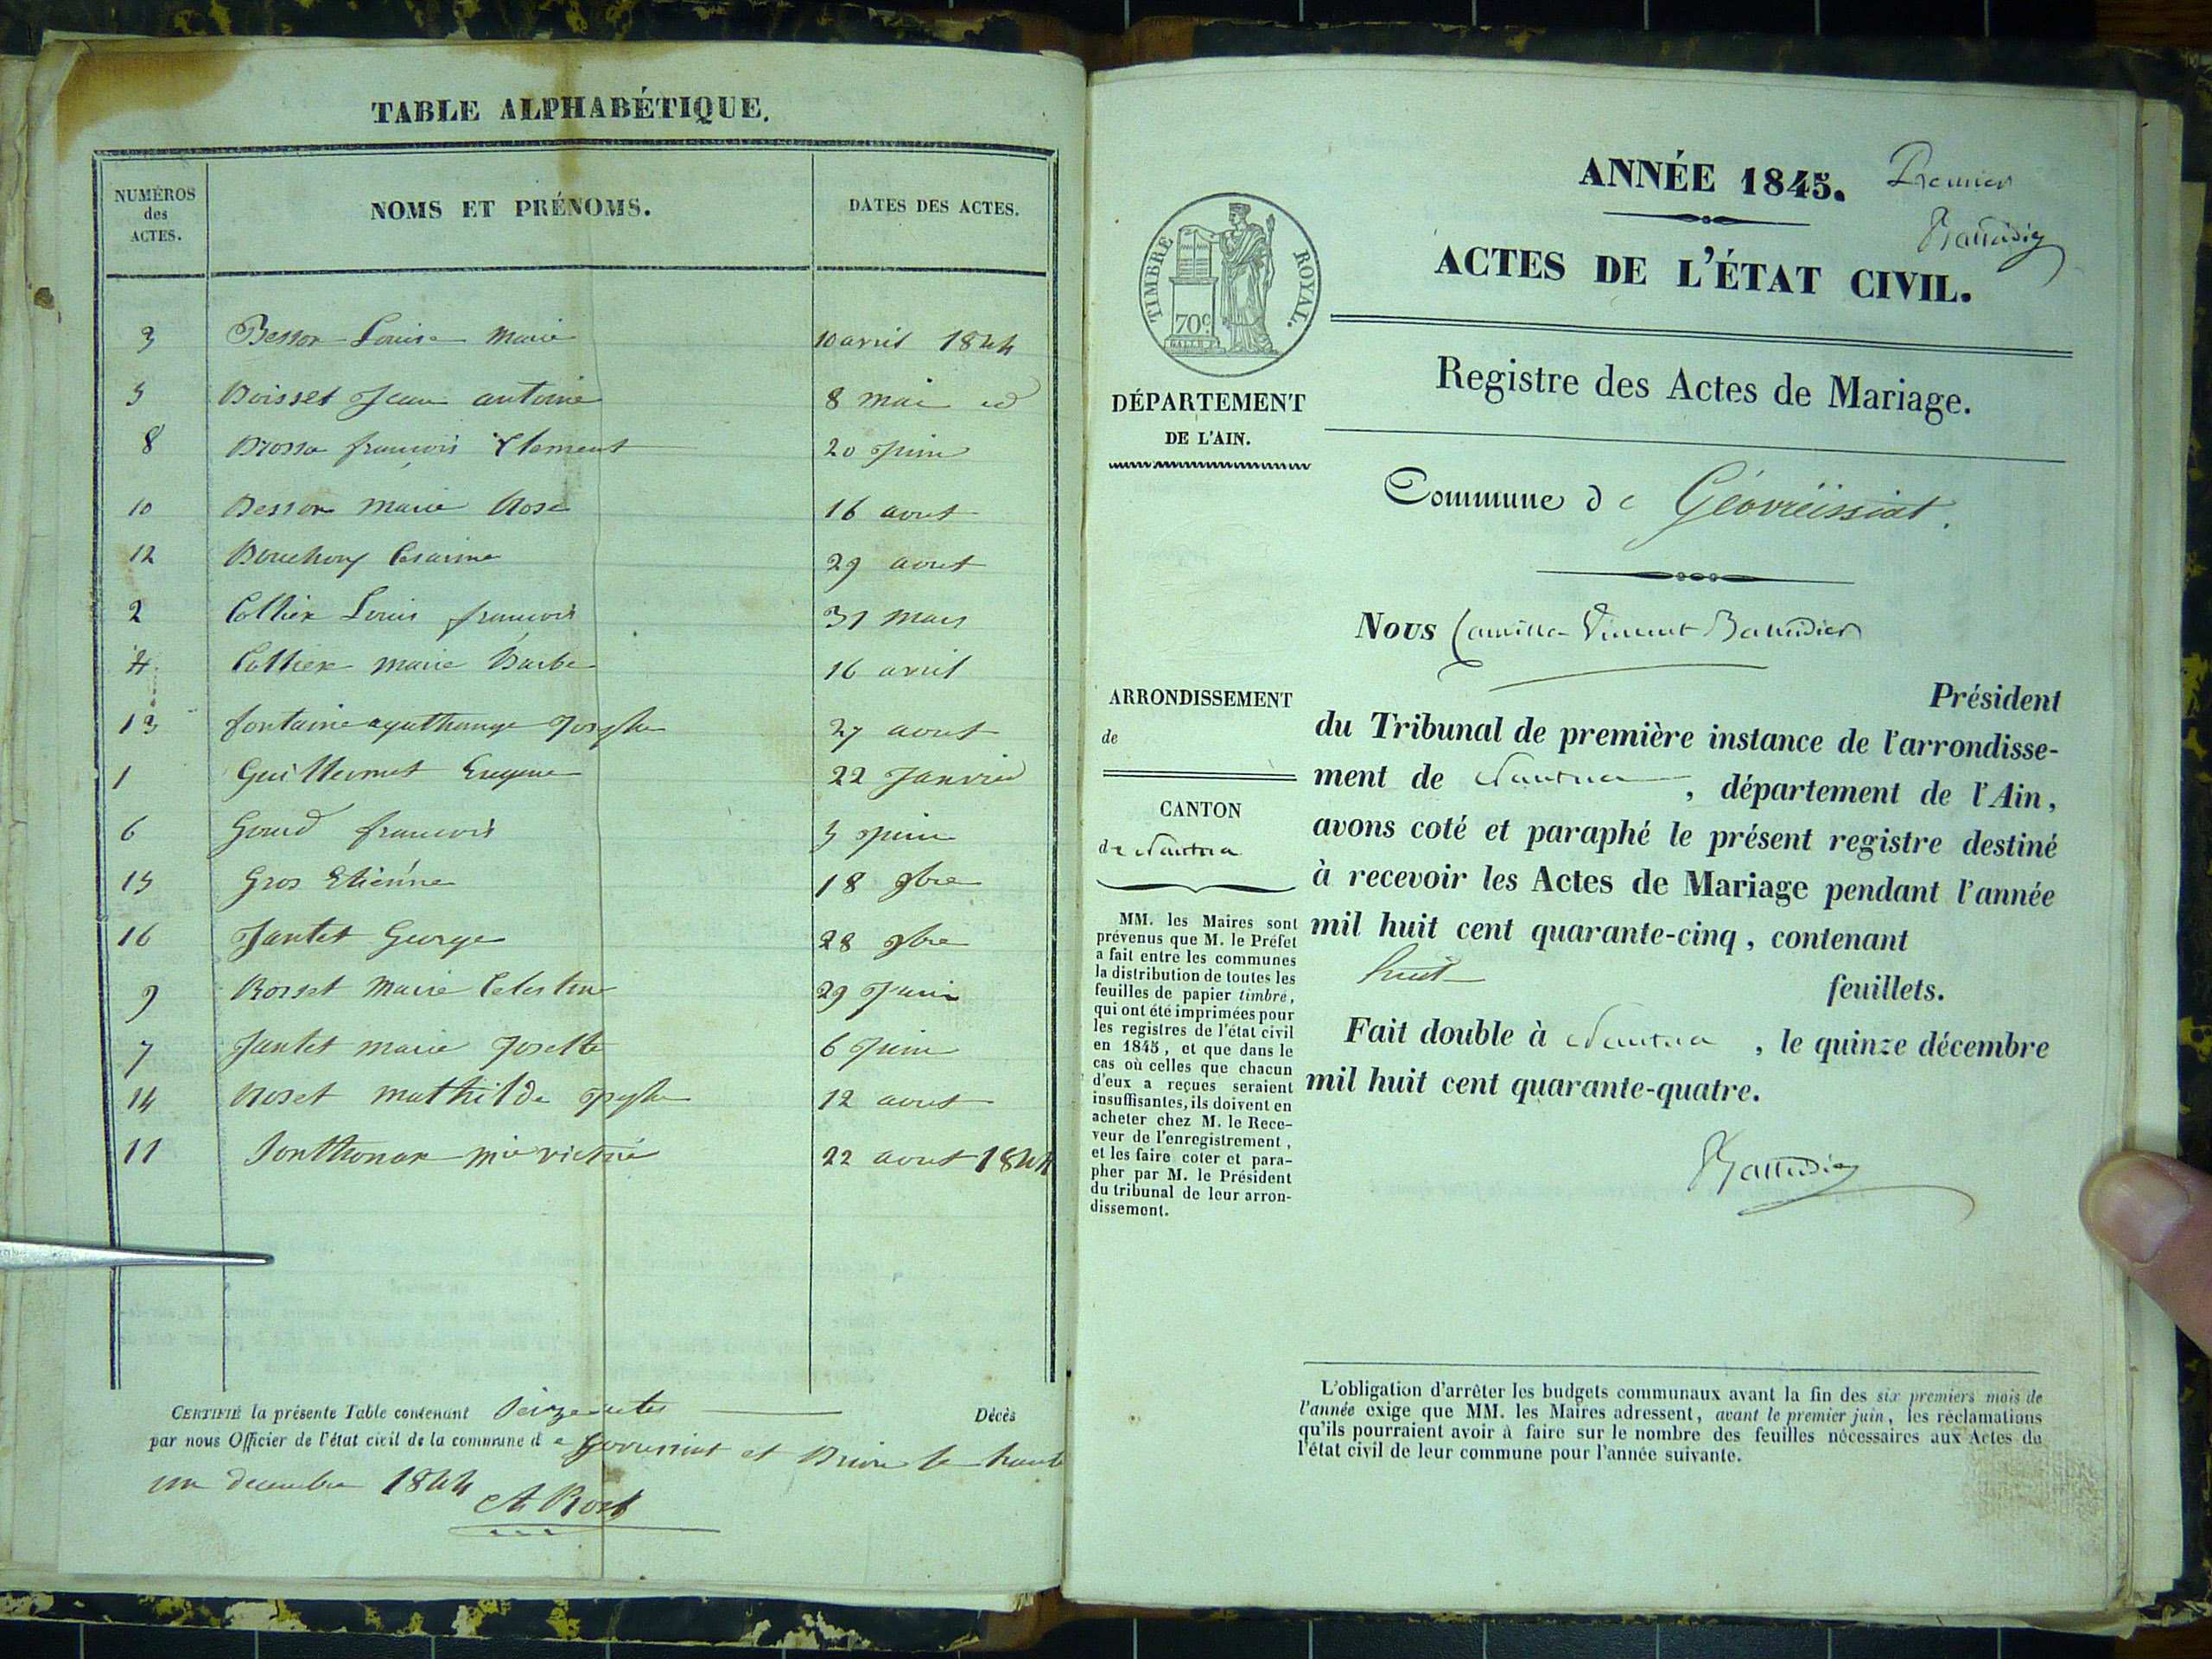 TABLE ALPHABÉTIQUE.
NUMÉROS des ACTES. NOMS ET PRÉNOMS. DATES DES ACTES.
3 Besson Louise Marie 10 avril 1844
5 Boisset Jean antoine 8 mai id
8 Brosse françois Clement 20 Juin
10 Besson marie Rose 16 aout
12 Bouchoux Cesarine 29 aout
2 Collier Louis françois 31 mars
4 Collier marie Barbe 16 avril
13 fontaine agathange Joseph 27 aout
1 Guillermet Eugene 22 Janvier
6 Goud françois 3 Juin
15 Gros Etienne 18 9bre
16 Jantet George 28 9bre
9 Rosset Marie Celestine 29 Juin
7 Jantet marie Josette 6 Juin
14 Roset mathilde 12 aout
11 Sonthonax mie 22 aout 1844
CERTIFIÉ la présente Table contenant Seize actes Décès
par nous Officier de l'état civil de la commune de Geovreissiat et
un decembre 1844
ANNÉE 1845. Premier
Ballaidier
ACTES DE L'ÉTAT CIVIL.
TIMBRE ROYAL.
70c
Registre des Actes de Mariage.
DÉPARTEMENT
DE L'AIN.
Commune de Géovreissiat.
Nous Camille Vincent
Président
ARRONDISSEMENT
de
CANTON
de Nantua
du Tribunal de première instance de l'arrondisse-
ment de Nantua, département de l'Ain,
avons coté et paraphé le présent registre destiné
à recevoir les Actes de Mariage pendant l'année
mil huit cent quarante-cinq, contenant
huit feuillets.
Fait double à Nantua, le quinze décembre
mil huit cent quarante-quatre.
MM. les Maires sont
prévenus que M. le Préfet
a fait entre les communes
la distribution de toutes les
feuilles de papier timbré,
qui ont été imprimées pour
les registres de l'état civil
en 1845, et que dans le
cas où celles que chacun
d'eux a reçues seraient
insuffisantes, ils doivent en
acheter chez M. le Rece-
veur de l'enregistrement,
et les faire coter et para-
pher par M. le Président
du tribunal de leur arron-
dissement.
L'obligation d'arrêter les budgets communaux avant la fin des six premiers mois de
l'année exige que MM. les Maires adressent, avant le premier juin, les réclamations
qu'ils pourraient avoir à faire sur le nombre des feuilles nécessaires aux Actes de
l'état civil de leur commune pour l'année suivante.